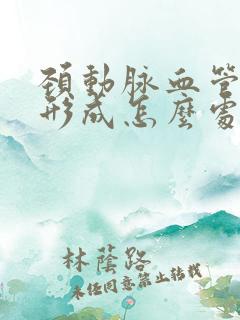 頚動脉血管
形成怎麼處
林蔭路
未经同意禁止转载